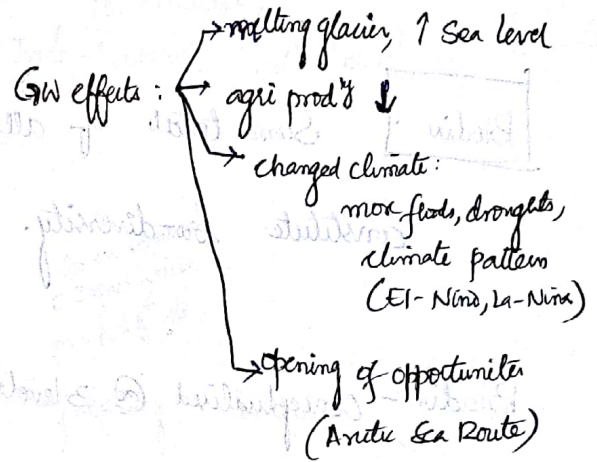 melting glacier, ↑ Sea level
GW effects :
agri prod'y ↓
changed climate :
more floods, droughts,
climate pattern
(El-Nino, La-Nina)
opening of opportunites
(Arctic Sea Route)